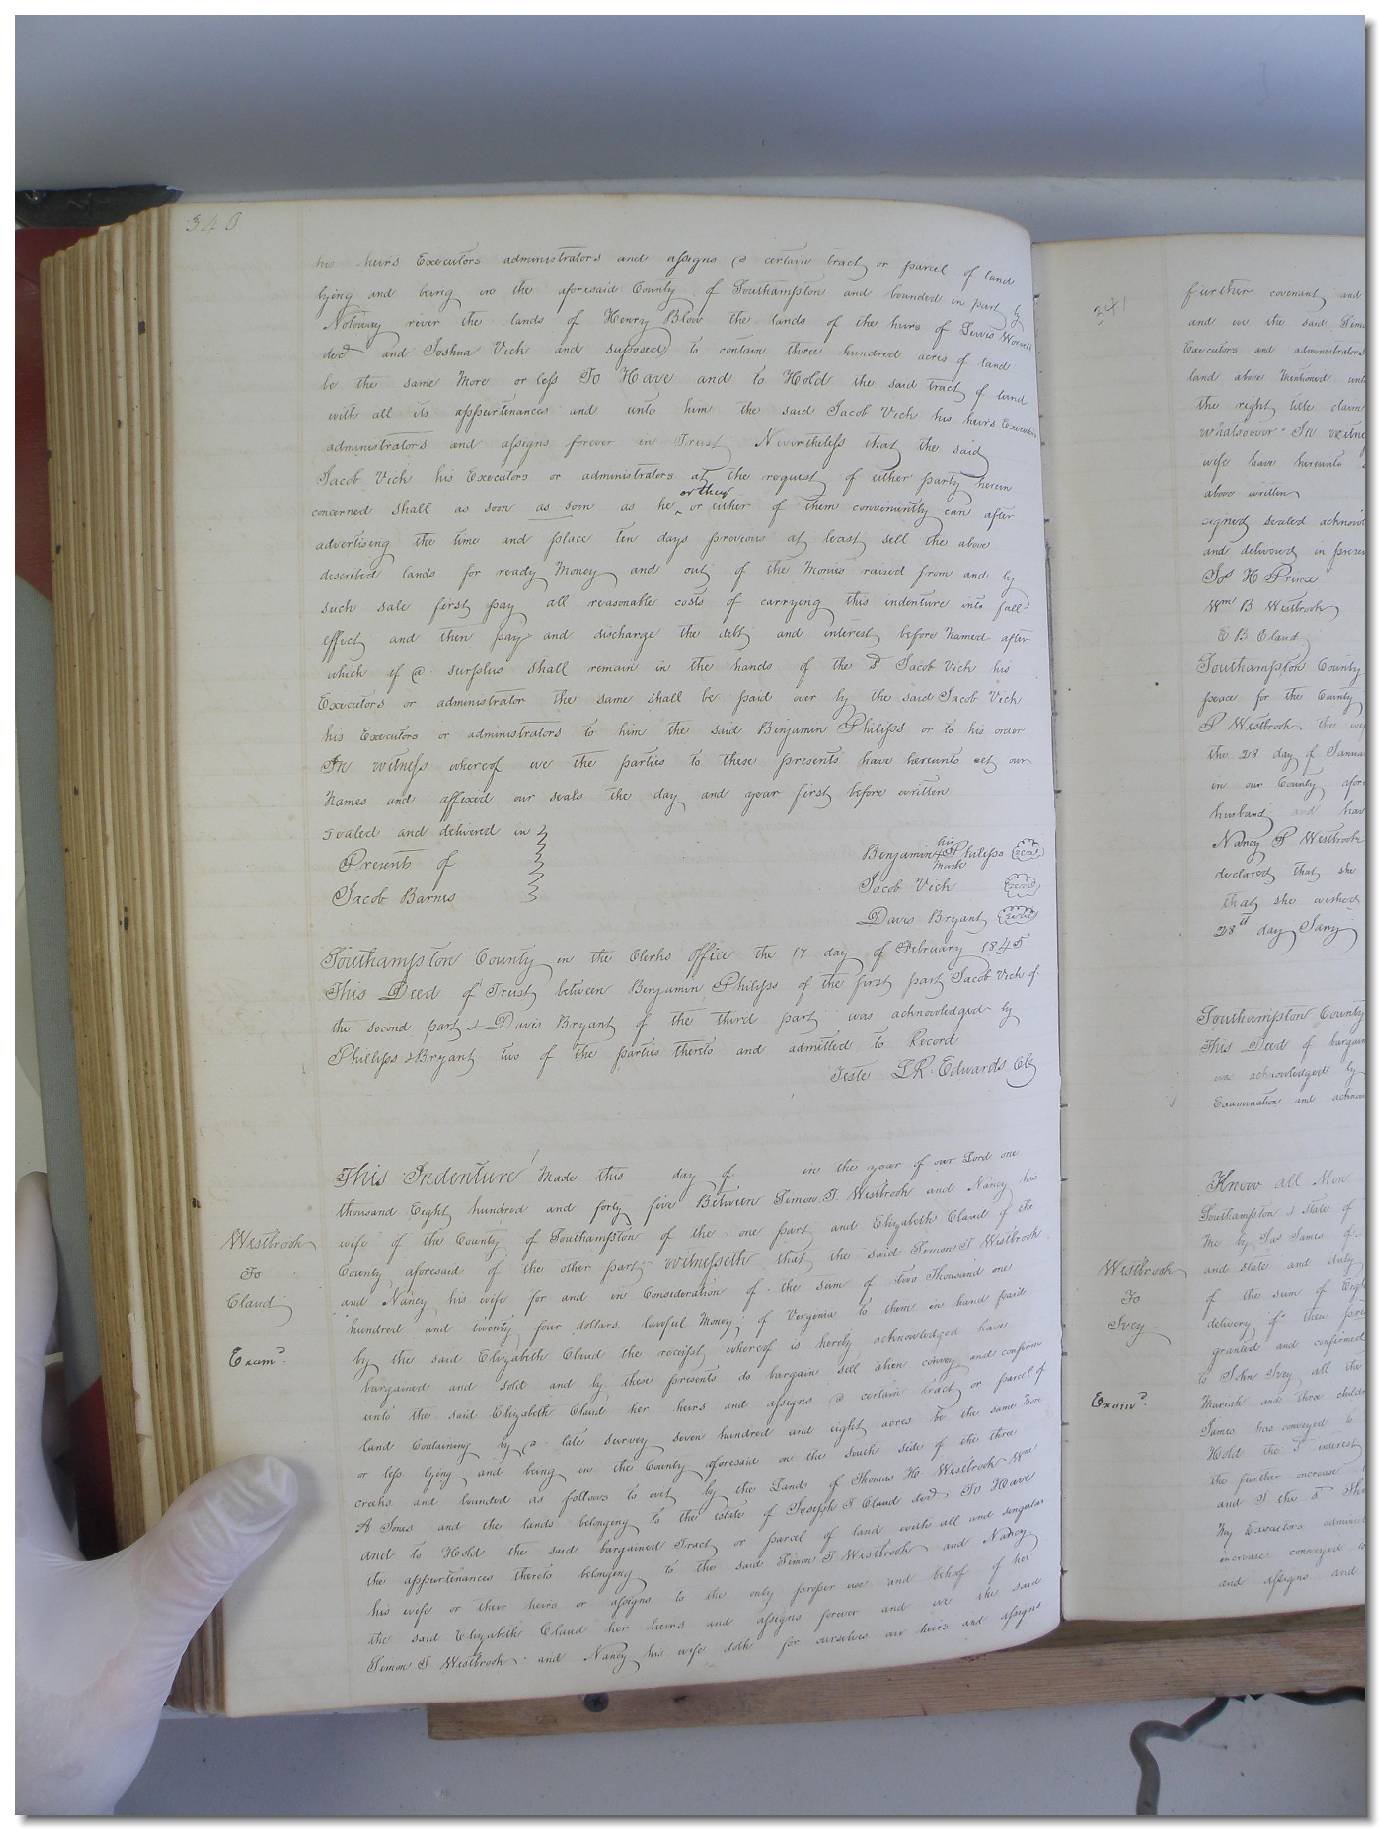 340
his heirs Executors administrators and assigns a certain tract or parcel of land
lying and being in the aforesaid County of Southampton and bounded in part by
Notoway river the lands of Henry Blow the lands of the heirs of
decd and Joshua Vick and supposed to contain three hundred acres of land
be the same More or less To Have and to Hold the said tract of land
with all its appurtenances and unto him the said Jacob Vick his heirs Executors
administrators and assigns forever in Trust Nevertheless that the said
Jacob Vick his Executors or administrators at the request of either party herein
or they
concerned shall as soon as soon as he or either of them conveniently can after
advertising the time and place ten days previous at least sell the above
described lands for ready Money and out of the Monies raised from and by
such sale first pay all reasonable costs of carrying this indenture into full
effect and then pay and discharge the debt and interest before Named after
which if a surplus shall remain in the hands of the sd Jacob Vick his
Executors or administrator the same shall be paid over by the said Jacob Vick
his Executors or administrators to him the said Benjamin Philips or to his order
In witness whereof we the parties to these presents have hereunto set our
Names and affixed our seals the day and year first before written
Sealed and delivered in
Presents of
Jacob Barnes
his
Benjamin Philips seal
mark
Jacob Vick seal
Davis Bryant seal
Southampton County in the Clerks office the 17 day of February 1845
This Deed of Trust between Benjamin Philips of the first part Jacob Vick of
the second part & Davis Bryant of the third part was acknowledged by
Phillips & Bryant two of the parties thereto and admitted to Record
Teste L R Edwards Clk
Westbrook
To
Claud
Examd.
This Indenture Made this day of in the year of our Lord one
thousand Eight hundred and forty five Between Simon T Westbrook and Nancy his
wife of the County of Southampton of the one part and Elizabeth Claud of the
County aforesaid of the other part Witnesseth that the said Simon T Westbrook
and Nancy his wife for and in Consideration of the sum of two Thousand one
hundred and twenty four dollars lawful Money of Verginia to them in hand paid
by the said Elizabeth Claud the receipt whereof is hereby acknowledged have
bargained and sold and by these presents do bargain sell alien convey and confirm
unto the said Elizabeth Claud her heirs and assigns a certain tract or parcel of
land Containing by a late survey seven hundred and eight acres be the same More
or less lying and being in the County aforesaid on the south side of the three
creeks and bounded as follows to wit by the Lands of Thomas H Westbrook Wm
A Jones and the lands belonging to the estate of Joseph T Claud decd To Have
and to Hold the said bargained Tract or parcel of land with all and singular
the appurtenances thereto belonging to the said Simon T Westbrook and Nancy
his wife or their heirs or assigns to the only proper use and behoof of her
the said Elizabeth Claud her heirs and assigns forever and we the said
Simon T Westbrook and Nancy his wife doth for ourselves our heirs and assigns
341
further covenant and
and we the said Simo
Executors and administrators
land above Mentioned unto
the right title claim
whatsoever In witne
wife have hereunto
above written
signed sealed acknow
and delivered in presen
Jos H Prince
Wm B Westbrook
E B Claud
Southampton County
peace for the County
T Westbrook the
the 28 day of Janua
in our County afor
husband and hav
Nancy P Westbrook
declared that she
that she wished
28th day Jany
Southampton County
This Deed of bargain
was acknowledged by
Examination and acknow
Westbrook
To
Ivey
Examd.
Know all Men
Southampton & State of
Me by Jas James of
and state and duly
of the sum of Eig
delivery of these pres
granted and confirmed
to John Ivey all the
Mariah and three childr
James has conveyed to
Hold the sd interest
the further increase
and I the sd
My Executors administ
increase conveyed to
and assigns and